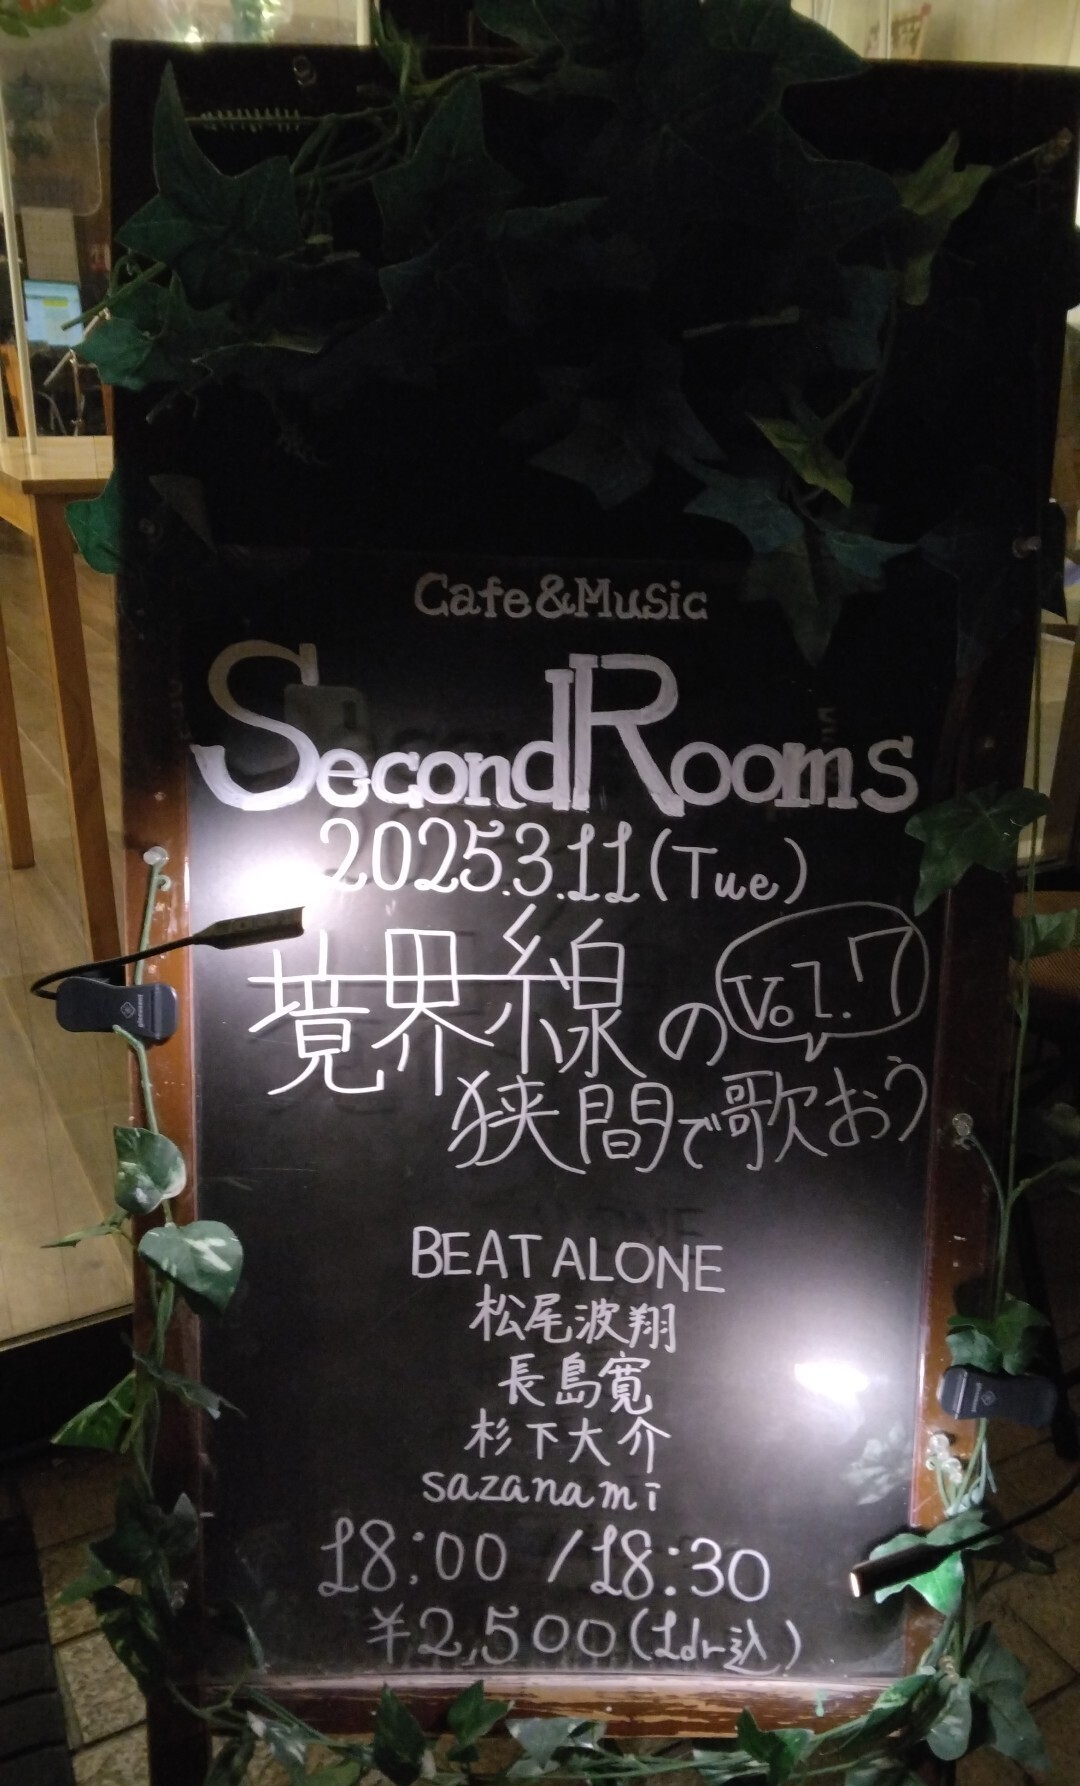 Cafe&Music
SecondRooms
2025.3.11(Tue)
境界線の
Vol.7
狭間で歌おう
BEAT ALONE
松尾波翔
長島寛
杉下大介
sazanami
18:00 / 18:30
¥2,500(1dr込)